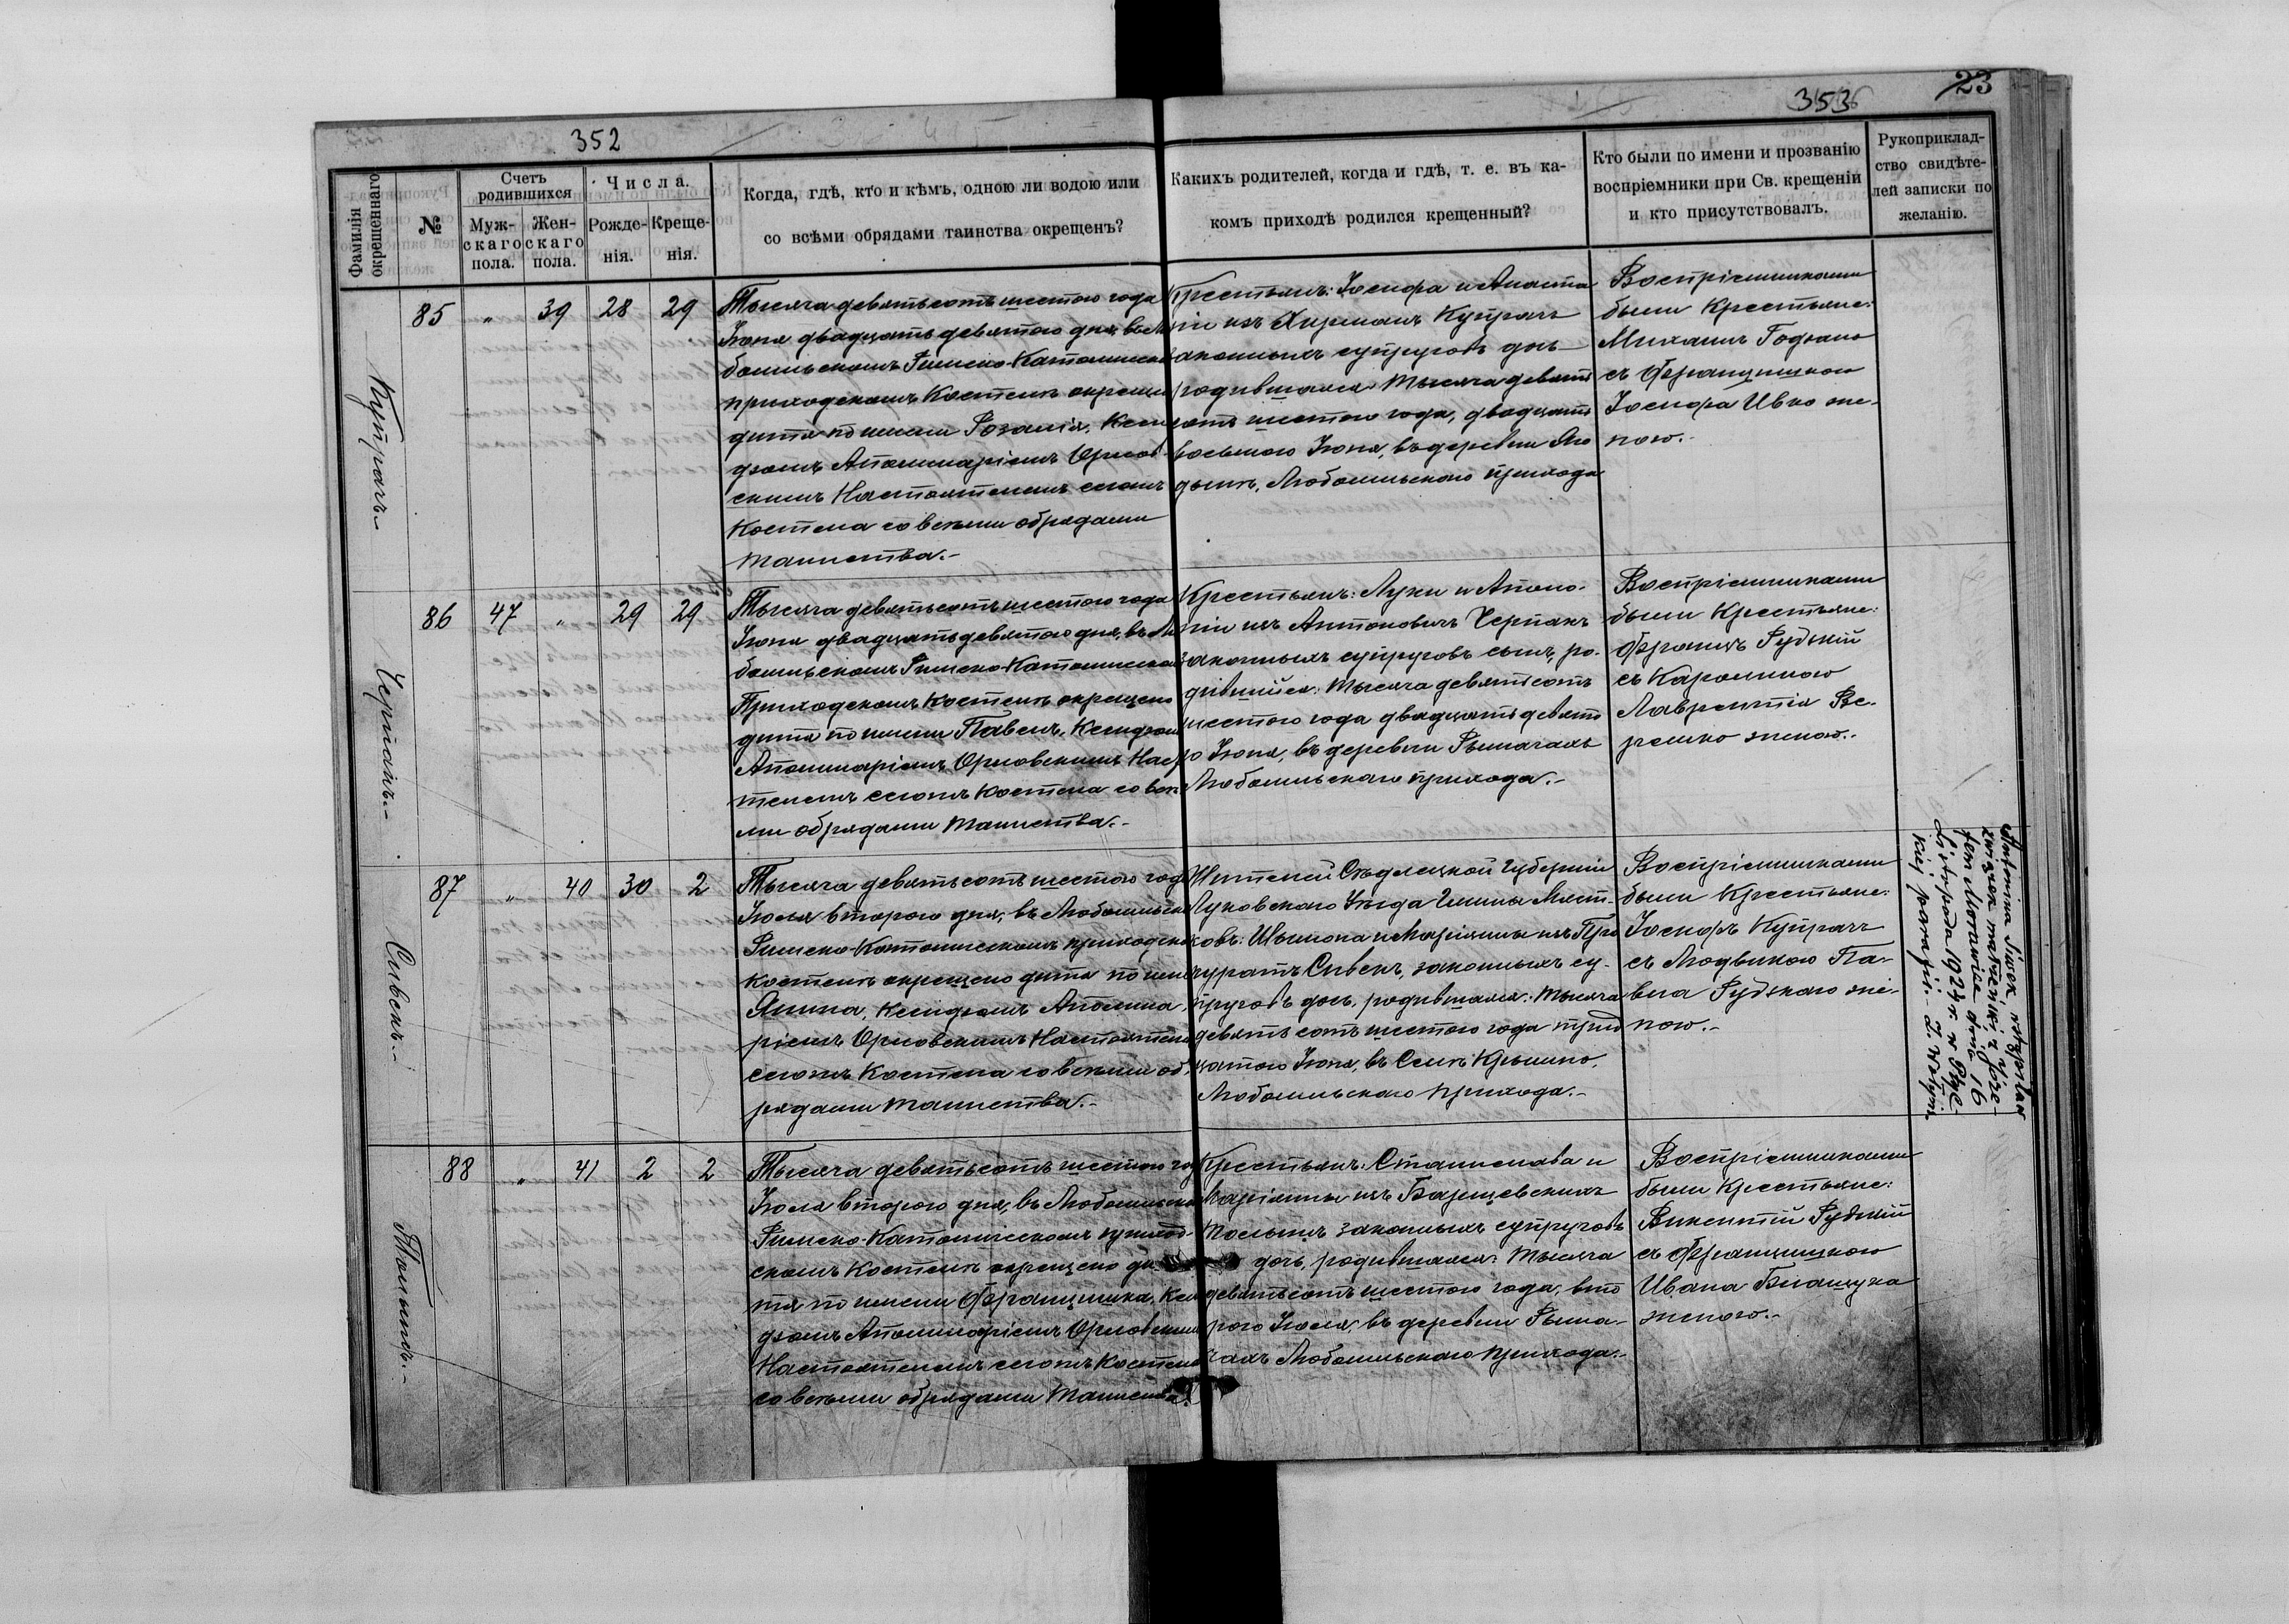 352
353
23
Фамилія окрещеннаго
№
Счетъ родившихся
Муж-
скаго
пола.
Жен-
скаго
пола.
Числа.
Рожде-
нія.
Креще-
нія.
Когда, гдѣ, кто и кѣмъ, одною ли водою или
со всѣми обрядами таинства окрещенъ?
Какихъ родителей, когда и гдѣ, т. е. въ ка-
комъ приходѣ родился крещенный?
Кто были по имени и прозванію
воспріемники при Св. крещеніи
и кто присутствовалъ.
Рукоприклад-
ство свидѣте-
лей записки по
желанію.
Купрачъ.-
85 " 39 28 29
Тысяча девятьсотъ шестого года
Іюня двадцать девятого дня, въ Лю
бомльскомъ Римско-Католическ
приходскомъ Костелѣ окрещен
дитя по имени Розалія, Ксен
дзомъ Аполинаріемъ Орлов
скимъ Настоятелемъ сегожъ
Костела со всѣми обрядами
таинства.-
Крестьянъ: Іосифа и Анаста
ніи изъ Купрачъ
законныхъ супруговъ дочь
родившаяся: тысяча девять
сотъ шестого года, двадцать
восьмого Іюня, въ деревни Яго
дынѣ, Любомльскаго прихода
Воспріемниками
были Крестьяне:
Михаилъ
съ Францишкою
Іосифа Ивко же-
ною.-
Черпакъ.-
86 47 " 29 29
Тысяча девятьсотъ шестого года
Іюня двадцать девятого дня, въ Лю
бомльскомъ Римско-Католическом
Приходскомъ Костелѣ окрещено
дитя по имени Павелъ, Ксендзом
Аполинаріемъ Орловскимъ Настоя
телемъ сегожъ Костела со всѣ
ми обрядами таинства.-
Крестьянъ: Луки и Аполо-
ніи изъ Антоновичъ Черпакъ
законныхъ супруговъ сынъ, ро-
дившійся: тысяча девятьсотъ
шестого года двадцать девято
го Іюня, въ деревни Рымачахъ
Любомльскаго прихода.-
Воспріемниками
были Крестьяне:
Францъ Рудзкій
съ Каролиною
Лаврентія Ве-
ремко женою.-
Сивекъ.-
87 " 40 30 2
Тысяча девятьсотъ шестого года
Іюля второго дня, въ Любомльском
Римско-Католическомъ приходско
костелѣ окрещено дитя по имен
Янина, Ксендзомъ Аполина-
ріемъ Орловскимъ Настоятеле
сегожъ Костела со всѣми об-
рядами таинства.-
Жителей Сѣдлецкой Губерніи
Луковскаго Уѣзда Гмины Мяст-
ковъ: Шымона и Маріанны изъ Про
куратъ Сивекъ, законныхъ су-
пруговъ дочь, родившаяся: тысяча
девятьсотъ шестого года трид
цатого Іюня, въ Селѣ Крымно,
Любомльскаго прихода.-
Воспріемниками
были Крестьяне:
Іосифъ Купрачъ
съ Людвикою Па-
вла Рудзкаго же-
ною.-
związek małżeński z Józe-
fem dnia 16
listopada 192
kiej parafji.
Тольпъ.-
88 " 41 2 2
Тысяча девятьсотъ шестого го
Іюля второго дня, въ Любомльско
Римско-Католическомъ приход-
скомъ Костелѣ окрещено ди
тя по имени Францишка, Ксен
дзомъ Аполинаріемъ Орловским
Настоятелемъ сегожъ Костела
со всѣми обрядами таинства.
Крестьянъ: Станислава и
Маріанны изъ Барщевскихъ
законныхъ супруговъ
дочь, родившаяся: тысяча
девятьсотъ шестого года, вто
рого Іюля, въ деревни Рыма-
чахъ Любомльскаго прихода.-
Воспріемниками
были Крестьяне:
Викентій Рудзкій
съ Францишкою
Ивана
женою.-